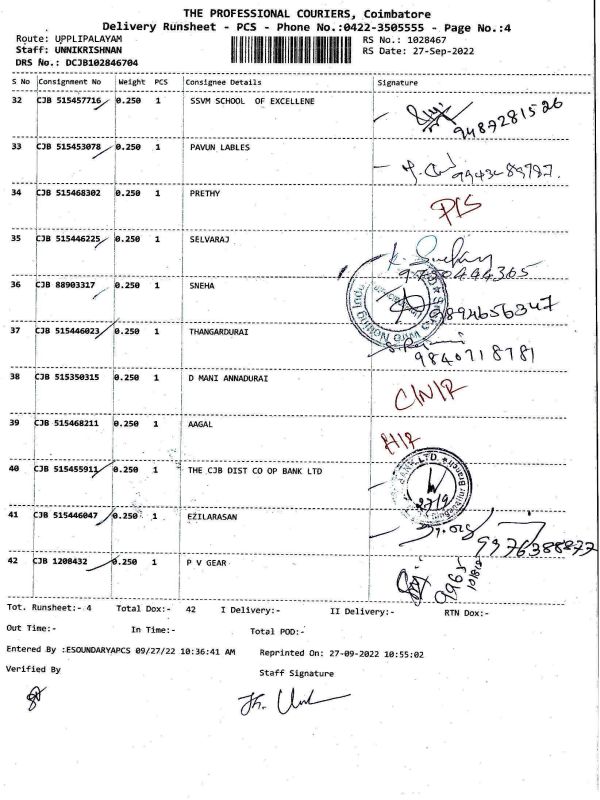 THE PROFESSIONAL COURIERS, Coimbatore
Delivery Runsheet - PCS - Phone No.:0422-3505555 - Page No.:4
Route: UPPLIPALAYAM RS No.: 1028467
Staff: UNNIKRISHNAN RS Date: 27-Sep-2022
DRS No.: DCJB102846704
S No Consignment No Weight PCS Consignee Details Signature
32 CJB 515457716 0.250 1 SSVM SCHOOL OF EXCELLENE
9487281526
33 CJB 515453078 0.250 1 PAVUN LABLES
34 CJB 515468302 0.250 1 PRETHY
35 CJB 515446225 0.250 1 SELVARAJ
9750444365
36 CJB 88903317 0.250 1 SNEHA
9894656347
37 CJB 515446023 0.250 1 THANGARDURAI
9840718781
38 CJB 515350315 0.250 1 D MANI ANNADURAI
39 CJB 515468211 0.250 1 AAGAL
40 CJB 515455911 0.250 1 THE CJB DIST CO OP BANK LTD
27/9
41 CJB 515446047 0.250 1 EZILARASAN
9976388877
42 CJB 1208432 0.250 1 P V GEAR
Tot. Runsheet:- 4 Total Dox:- 42 I Delivery:- II Delivery:- RTN Dox:-
Out Time:- In Time:- Total POD:-
Entered By :ESOUNDARYAPCS 09/27/22 10:36:41 AM Reprinted On: 27-09-2022 10:55:02
Verified By Staff Signature